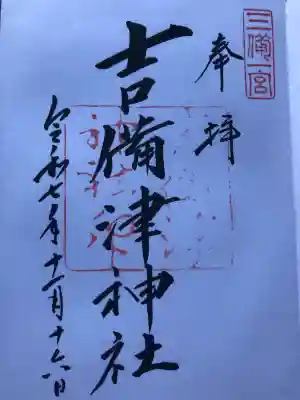 三備一宮
奉拝
吉備津神社
令和七年十一月十六日